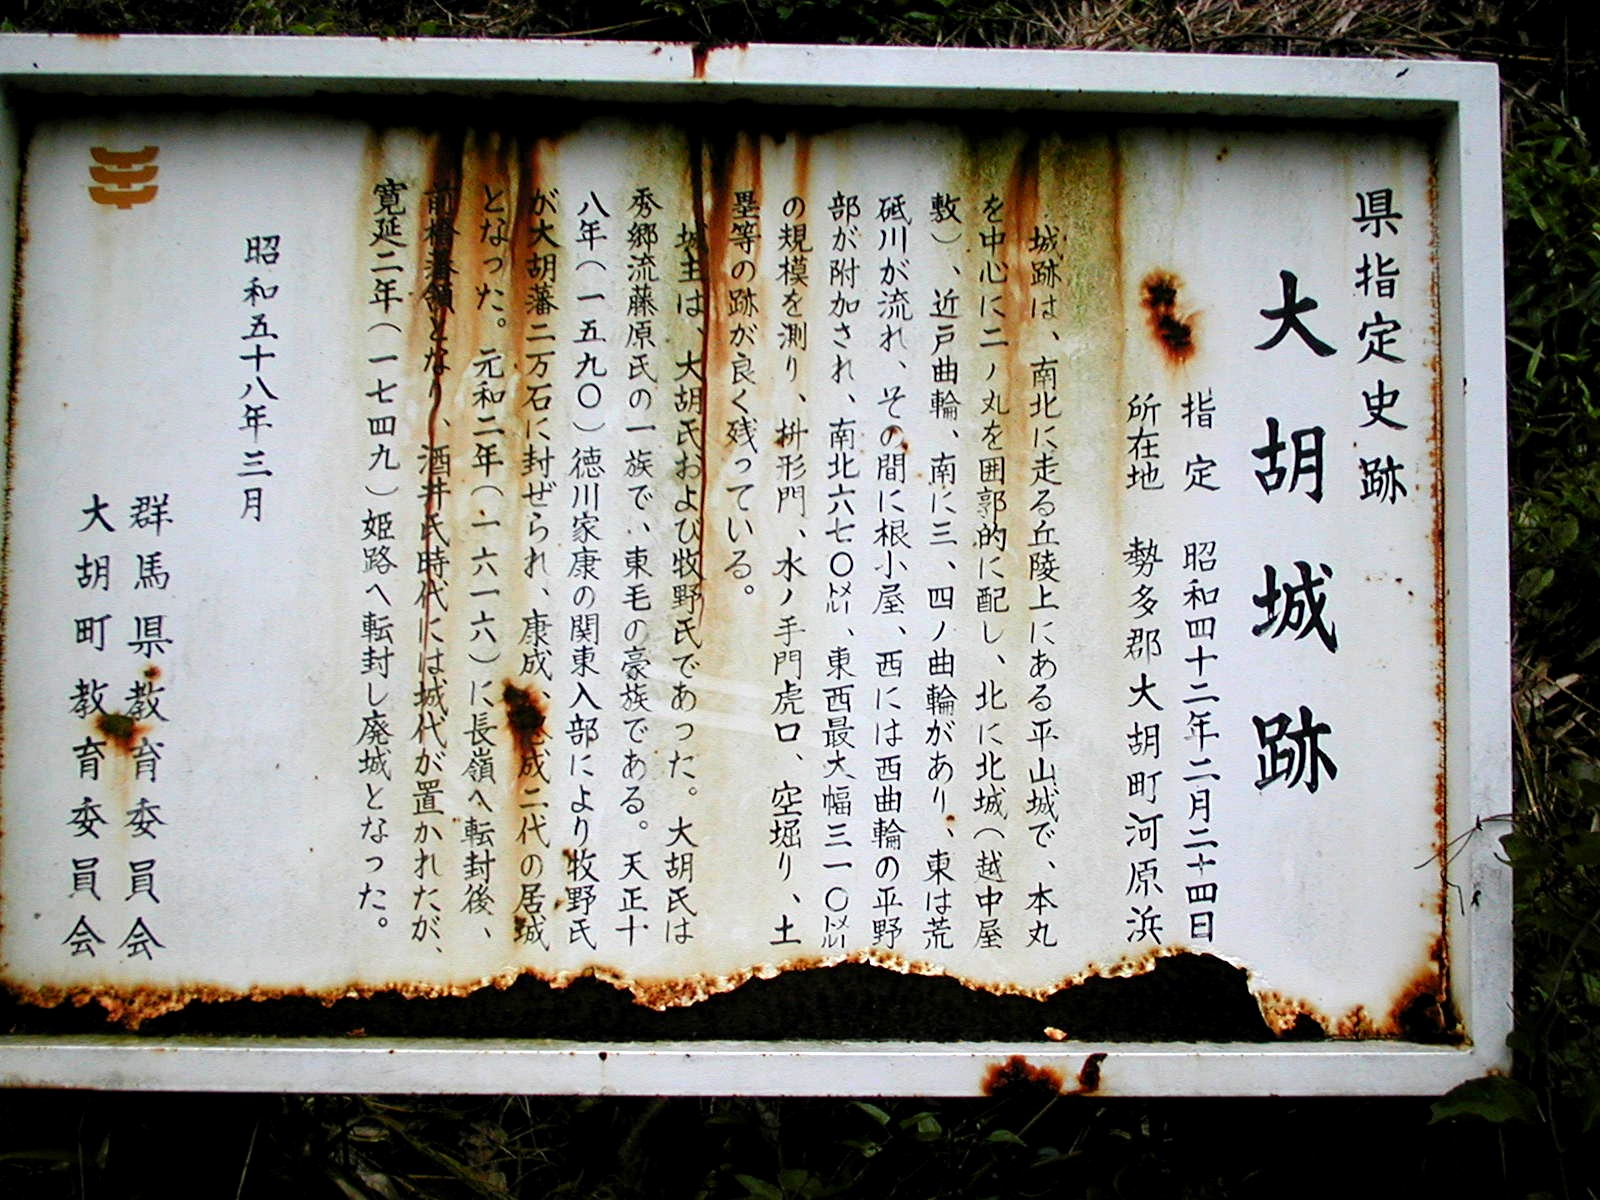 県指定史跡
大胡城跡
指定 昭和四十二年二月二十四日
所在地 勢多郡大胡町河原浜
城跡は、南北に走る丘陵上にある平山城で、本丸
を中心に二ノ丸を囲郭的に配し、北に北城(越中屋
敷)、近戸曲輪、南に三、四ノ曲輪があり、東は荒
砥川が流れ、その間に根小屋、西には西曲輪の平野
部が附加され、南北六七〇㍍、東西最大幅三一〇㍍
の規模を測り、枡形門、水ノ手門虎口、空堀り、土
塁等の跡が良く残っている。
城主は、大胡氏および牧野氏であった。大胡氏は
秀郷流藤原氏の一族で、東毛の豪族である。天正十
八年(一五九〇)徳川家康の関東入部により牧野氏
が大胡藩二万石に封ぜられ、康成、忠成二代の居城
となった。元和二年(一六一六)に長嶺へ転封後、
前橋藩領となり、酒井氏時代には城代が置かれたが、
寛延二年(一七四九)姫路へ転封し廃城となった。
昭和五十八年三月
群馬県教育委員会
大胡町教育委員会